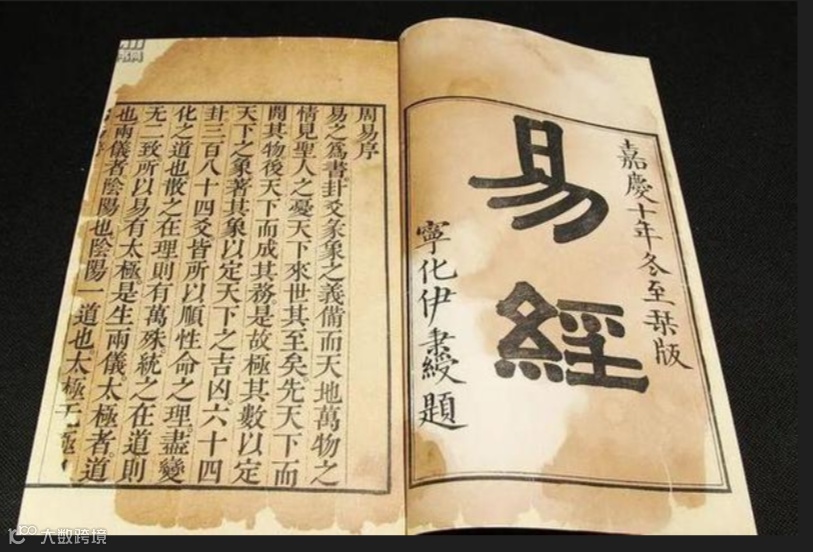 嘉慶十年冬至栞版
易經
寧化伊秉綬題
周易序
易之爲書。卦爻彖象之義備而天地萬物之
情見聖人之憂天下來世其至矣。先天下而
開其物後天下而成其務是故極其數以定
天下之象著其象以定天下之吉凶。六十四
卦三百八十四爻皆所以順性命之理。盡變
化之道也散之在理則有萬殊統之在道則
无二致所以易有太極是生兩儀。太極者。道
也兩儀者陰陽也陰陽一道也。太極无極
大数跨境